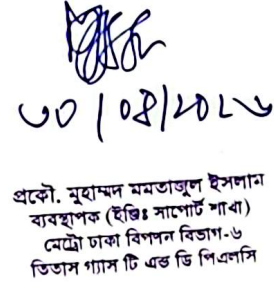 ৩০/০৪/২০২৬
প্রকৌ. মুহাম্মদ মমতাজুল ইসলাম
ব্যবস্থাপক (ইঞ্জিঃ সাপোর্ট শাখা)
মেট্রো ঢাকা বিপণন বিভাগ-৬
তিতাস গ্যাস টি এন্ড ডি পিএলসি